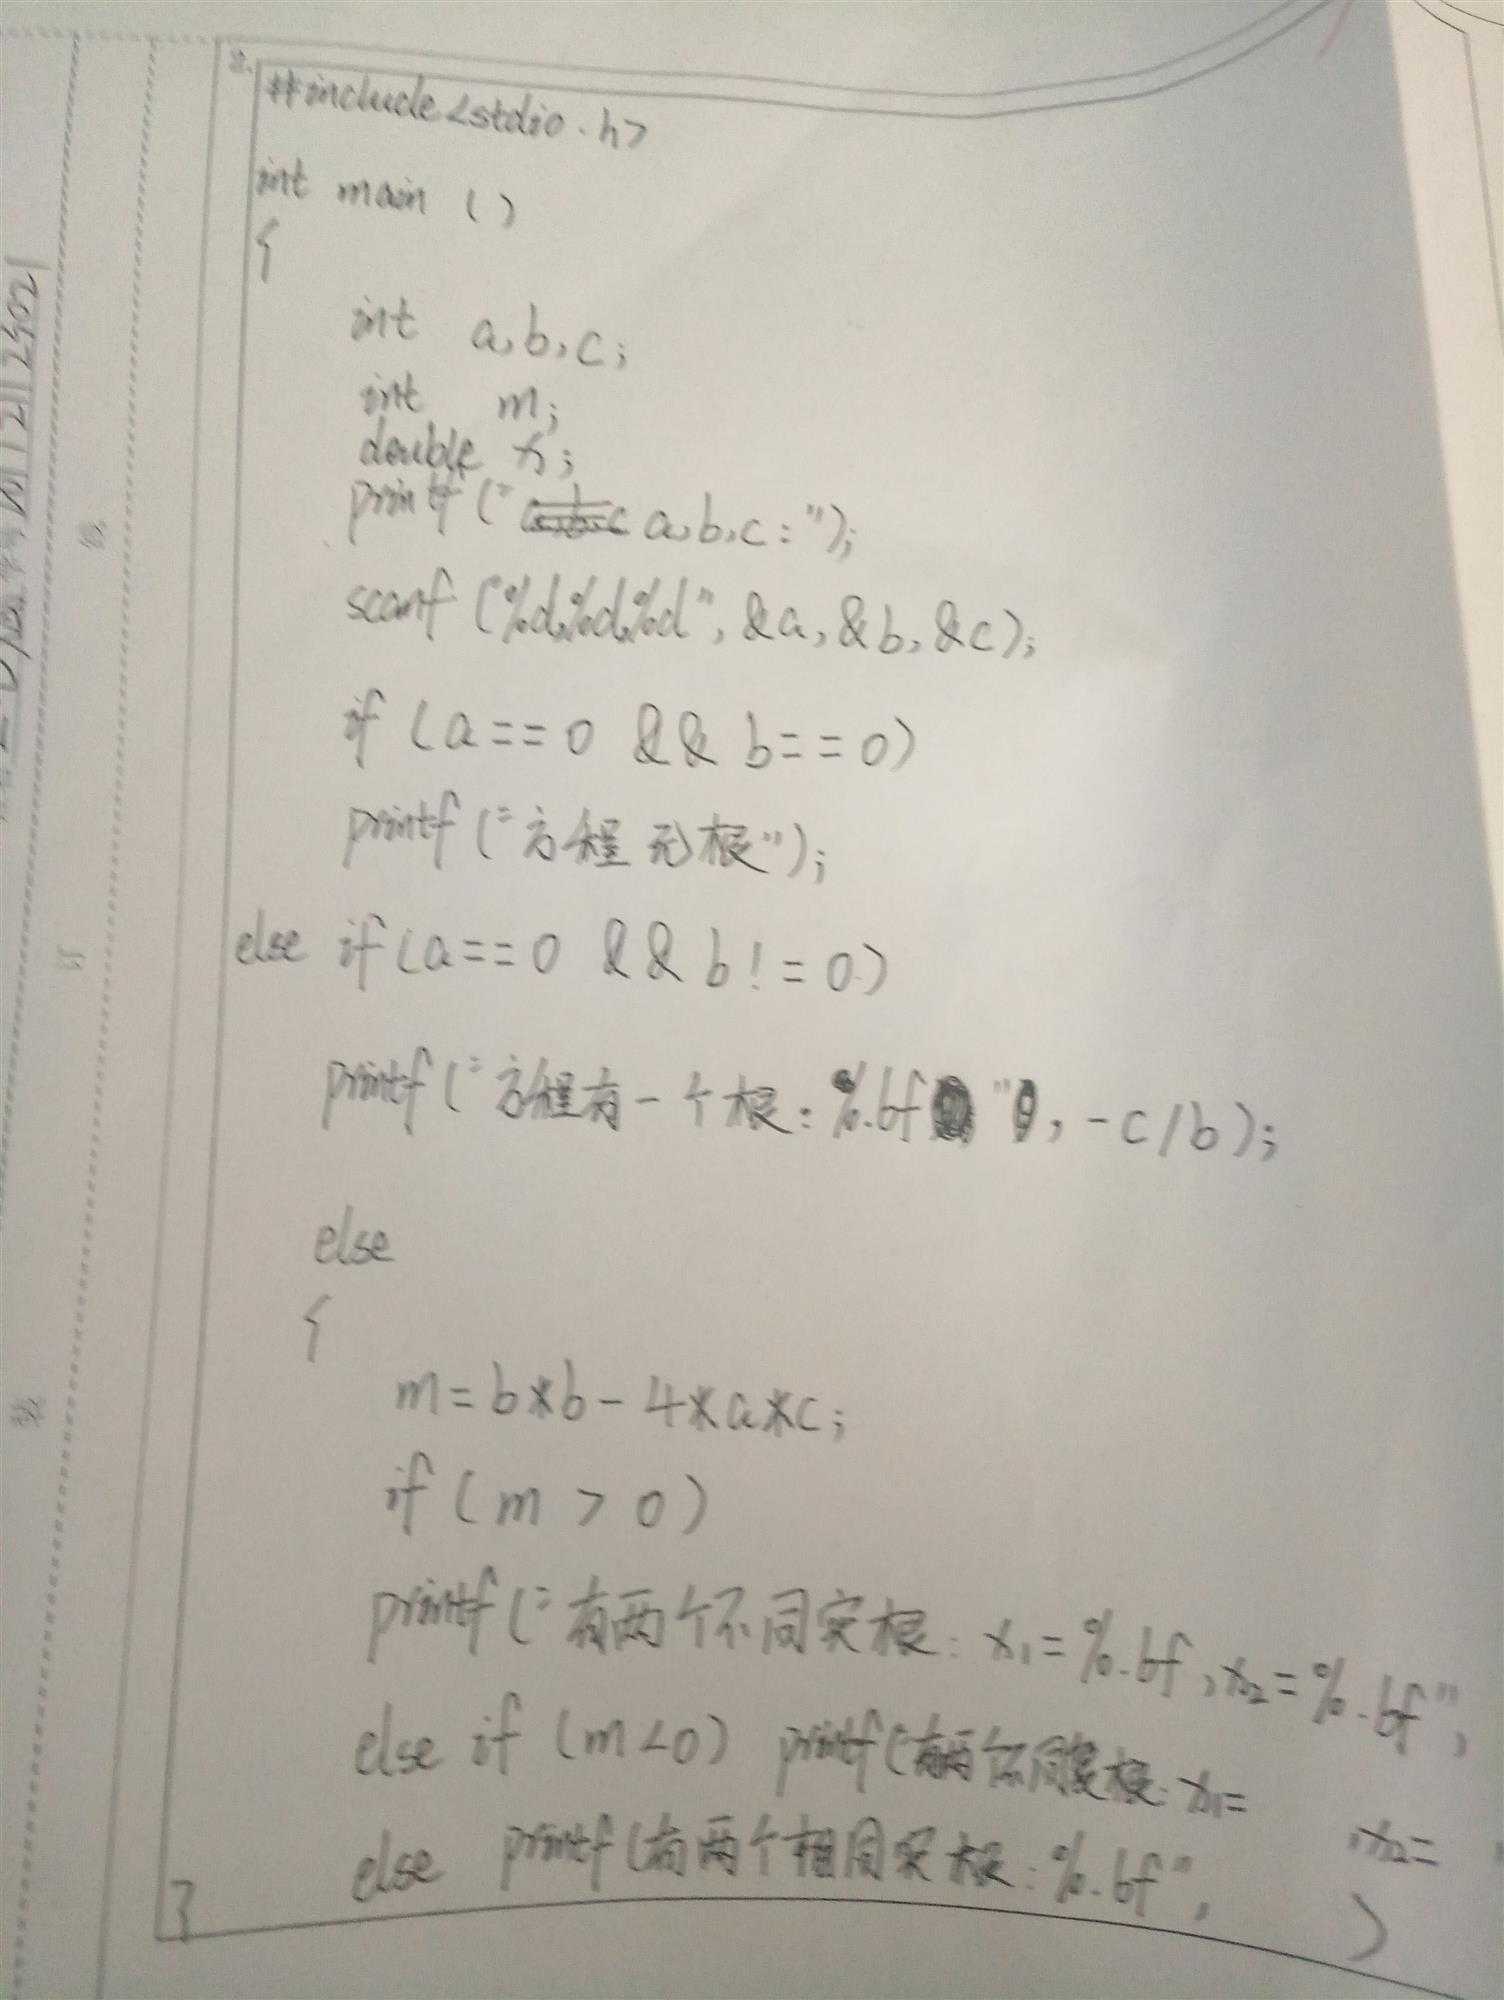 2.
#include<stdio.h>
int main ()
{
int a,b,c;
int m;
double x;
printf ("a,b,c:");
scanf ("%d,%d,%d", &a, &b, &c);
if (a==0 && b==0)
printf ("方程无根");
else if (a==0 && b!=0)
printf ("方程有一个根:%.6f", -c/b);
else
{
m=b*b-4*a*c;
if (m > 0)
printf ("有两个不同实根:x1=%.6f,x2=%.6f",
else if (m<0) printf ("有两个不同虚根:x1= ,x2=
else printf (有两个相同实根:%.6f", )
}